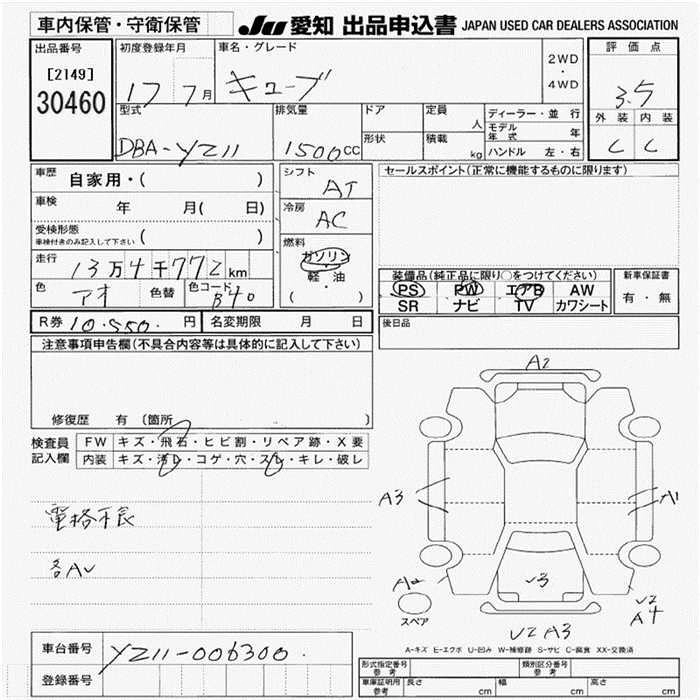 車内保管・守衛保管 JU 愛知 出品申込書 JAPAN USED CAR DEALERS ASSOCIATION
出品番号 初度登録年月 車名・グレード 評価点
[2149] 17 7月 キューブ 2WD・4WD 3.5
30460
外装 内装
C C
型式 排気量 ドア 定員 人 ディーラー・並行
DBA-YZ11 1500cc 形状 積載 kg モデル年式 年
ハンドル 左・右
車歴 自家用・( ) シフト AT セールスポイント(正常に機能するものに限ります)
車検 年 月( 日) 冷房 AC
受検形態 ( )
車検付きのみ記入して下さい
燃料 ガソリン 軽・油 ( )
走行 13万4千772km
色 アオ 色替 色コード B40
装備品(純正品に限り○をつけてください) 新車保証書
PS PW エアB AW 有・無
SR ナビ TV カワシート
R券 10,550.円 名変期限 月 日 後日品
注意事項申告欄(不具合内容等は具体的に記入して下さい)
修復歴 有 〔箇所 〕
検査員記入欄 FW キズ・飛石・ヒビ割・リペア跡・X要
内装 キズ・汚レ・コゲ・穴・スレ・キレ・破レ
電格不良
各AU
A2
A3 A1
A2 U3 U2
A4
スペア
U2 A3
A-キズ E-エクボ U-凹み W-補修跡 S-サビ C-腐食 XX-交換済
車台番号 YZ11-006300.
登録番号
形式指定番号 参考 類別区分番号 参考
車庫証明用 参考 長さ cm 幅 cm 高さ cm